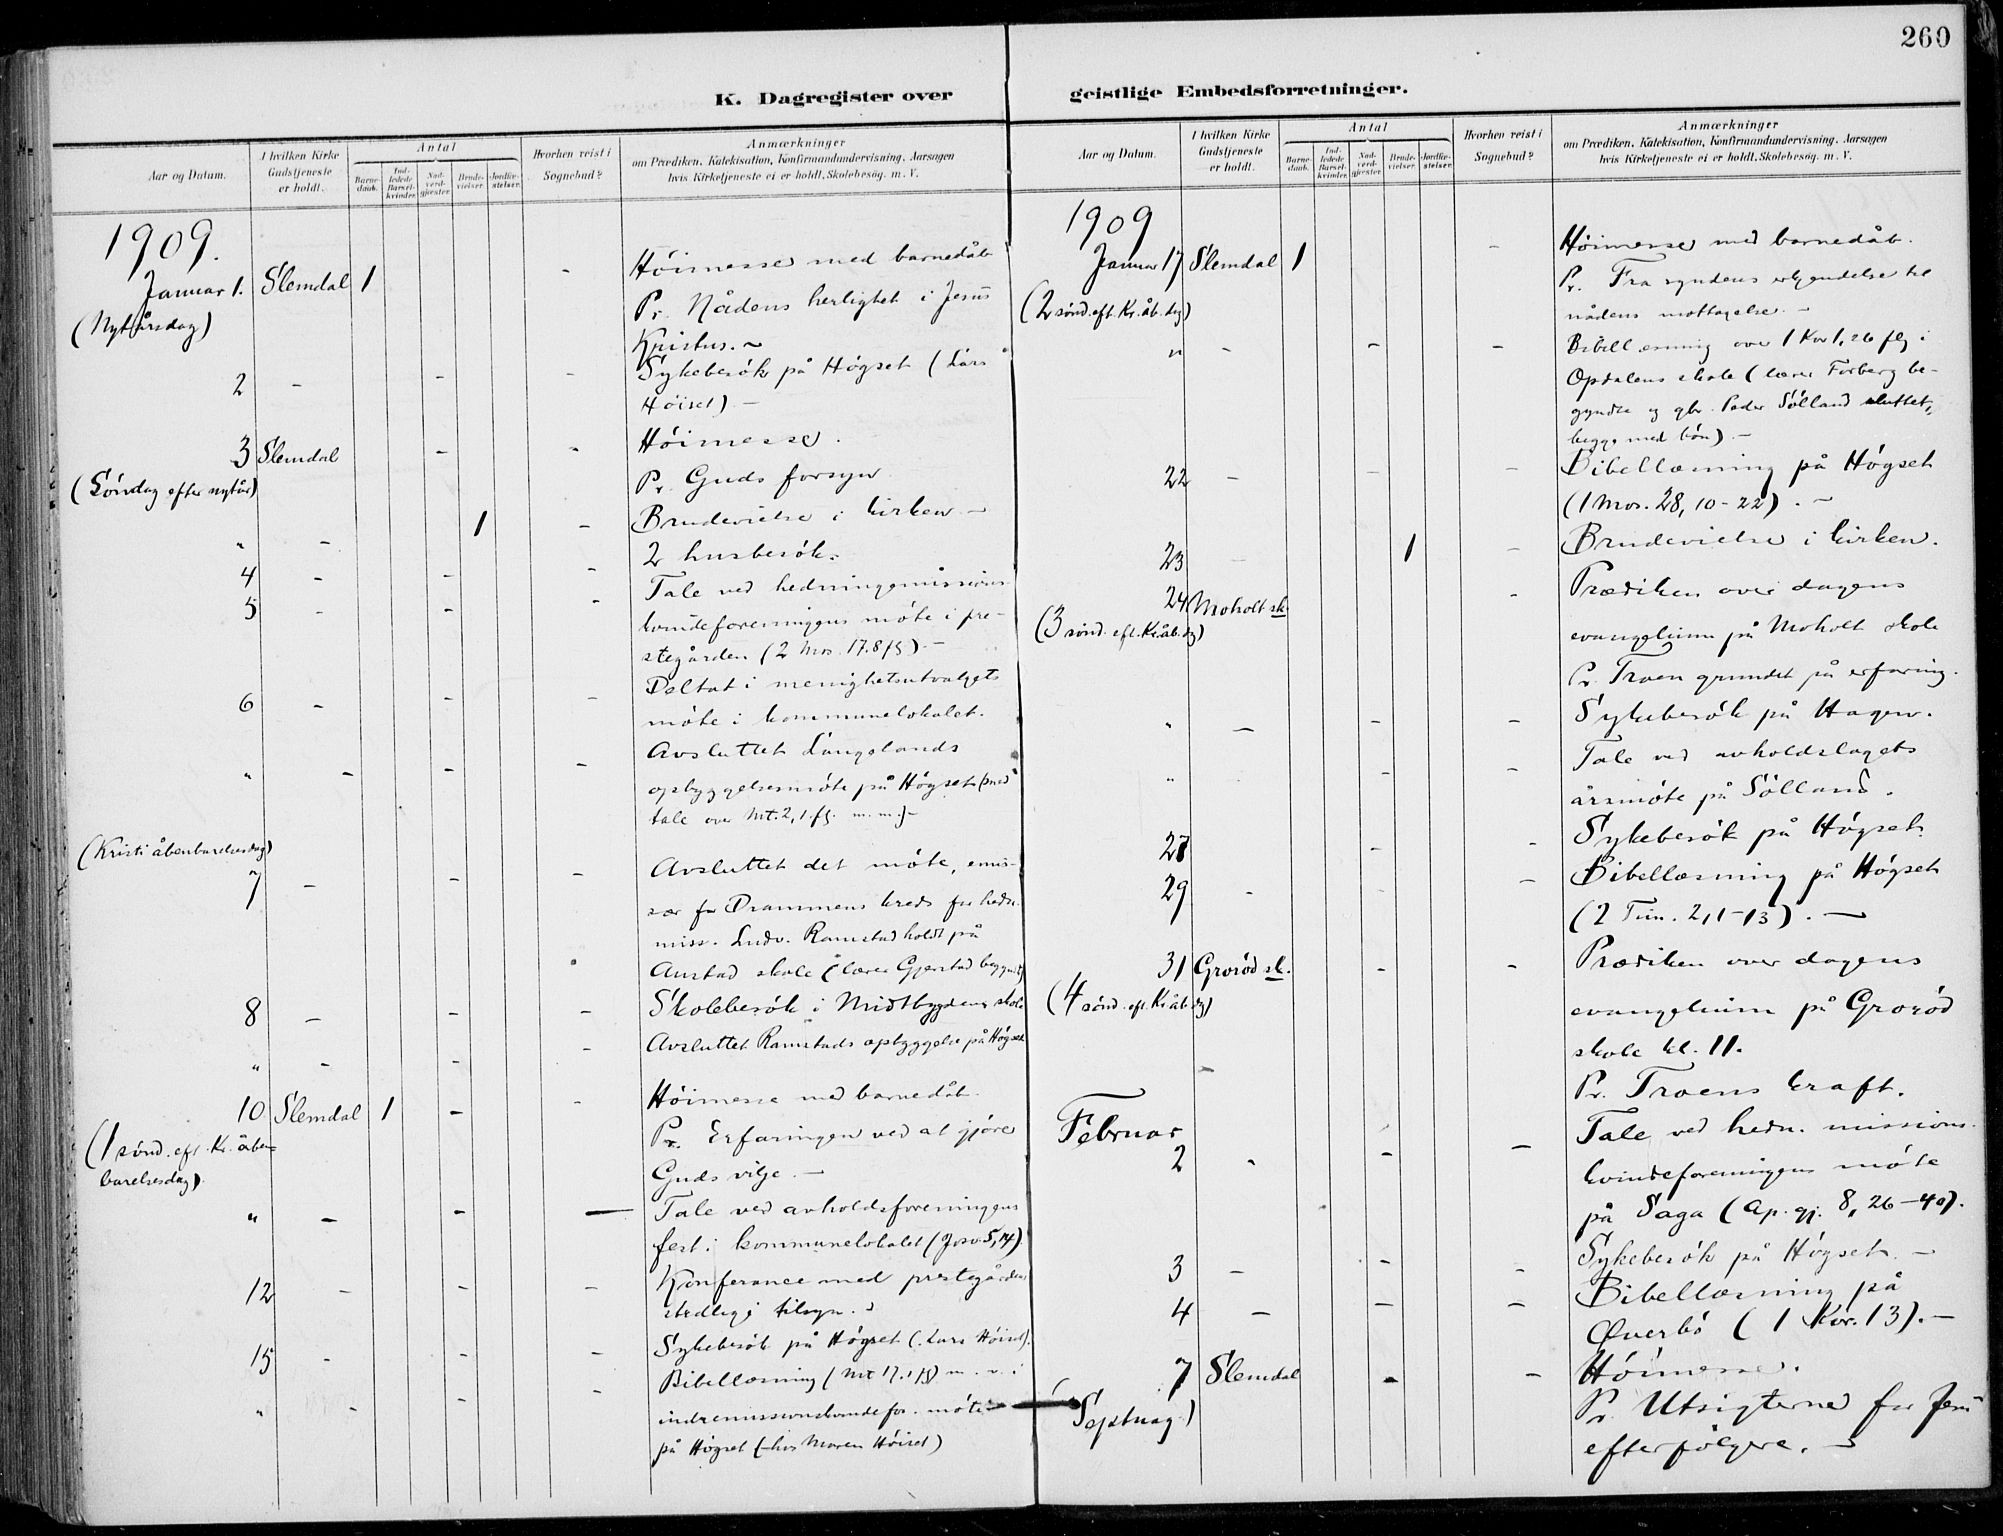 260
K. Dagregister over
geistlige Embedsforretninger.
Aar og Datum.
I hvilken Kirke Gudstjeneste er holdt.
Antal
Barne-daab.
Ind-ledede Barsel-kvinder.
Nad-verd-gjæster.
Brude-vielser.
Jordfæ-stelser.
Hvorhen reist i Sognebud?
Anmærkninger
om Prædiken, Katekisation, Konfirmandundervisning, Aarsagen
hvis Kirketjeneste ei er holdt, Skolebesøg. m. V.
1909.
Januar 1. Slemdal 1 - Høimesse med barnedåb
(Nytårsdag) Pr. Nådens herlighet i Jesus
Kristus. ~
2 - - - Sykebesøk på Høgset (Lars
Høiset). -
3 Slemdal - - Høimesse.
(Søndag efter nytår) Pr. Guds forsyn
1 - Brudevielse i kirken -
" - 2 husbesøk.
4 - - - Tale ved hedningemissions-
5 - - - kvindeforeningens møte i pre-
stegården (2 Mos. 17. 8 flg). -
6 - - - Deltat i menighetsutvalgets
møte i kommunelokalet.
" - - - Avsluttet Langelands
opbyggelsesmøte på Høgset (med
tale over Mt. 2, 1. flg. m. m.) -
(Kristi åbenbarelsesdag)
7 - - - Avsluttet det møte, emis-
sær for Drammens kreds for hedn.
miss. Ludv. Ramstad holdt på
Aurstad skole (lærer Gjerstad begynte)
8 - - - Skolebesøk i Midtbygdens skole
" - - - Avsluttet Ramstads opbyggelse på Høgset
10 Slemdal 1 - - Høimesse med barnedåb.
(1 sønd. eft. Kr. åben- Pr. Erfaringen ved at gjøre
barelsesdag). Guds vilje. -
" - - - Tale ved avholdsforeningens
fest i kommunelokalet (Josv. 5, 14)
12 - - - Konferance med prestegårdens
stedlige tilsyn.
15 - - - Sykebesøk på Høgset (Lars Høiset).
" - - - Bibellæsning (Mt 17. 1 flg) m. v. i
indremissionskvindefor. møte
på Høgset (hos Maren Høiset)
Aar og Datum.
I hvilken Kirke Gudstjeneste er holdt.
Antal
Barne-daab.
Ind-ledede Barsel-kvinder.
Nad-verd-gjæster.
Brude-vielser.
Jordfæ-stelser.
Hvorhen reist i Sognebud?
Anmærkninger
om Prædiken, Katekisation, Konfirmandundervisning, Aarsagen
hvis Kirketjeneste ei er holdt, Skolebesøg. m. V.
1909
Januar 17 Slemdal 1 - Høimesse med barnedåb.
(2 sønd. eft. Kr. åb. dg) Pr. Fra syndens erkjendelse til
nådens mottagelse. -
" - - - Bibellæsning over 1 Kor 1, 26 flg i
Opdalens skole (lærer Forberg be-
gyndte og gbr. Peder Sølland sluttet,
begge med bøn). -
22 - - - Bibellæsning på Høgset
(1 Mos. 28, 10-22). -
23 - 1 - Brudevielse i kirken.
24 Moholt sk. - Prædiken over dagens
(3 sønd. eft. Kr. åb. dg) evangelium på Moholt skole
Pr. Troen grundet på erfaring.
" - - - Sykebesøk på Hagen.
" - - Tale ved avholdslagets
årsmøte på Sølland.
27 - - Sykebesøk på Høgset
29 - - - Bibellæsning på Høgset
(2 Tim. 2, 1-13). -
31 Grorød sk. - - Prædiken over dagens
(4 sønd. eft. Kr. åb. dg) evangelium på Grorød
skole kl. 11.
Pr. Troens kraft.
Februar
2 - - - Tale ved hedn. missions-
kvindeforeningens møte
på Saga (Ap. gj. 8, 26-40).
3 - - - Sykebesøk på Høgset. -
4 - - - Bibellæsning på
Øverbø (1 Kor. 13). -
7 Slemdal - - Høimesse.
(Septuag.) Pr. Utsigterne for Jesu
efterfølgere. -